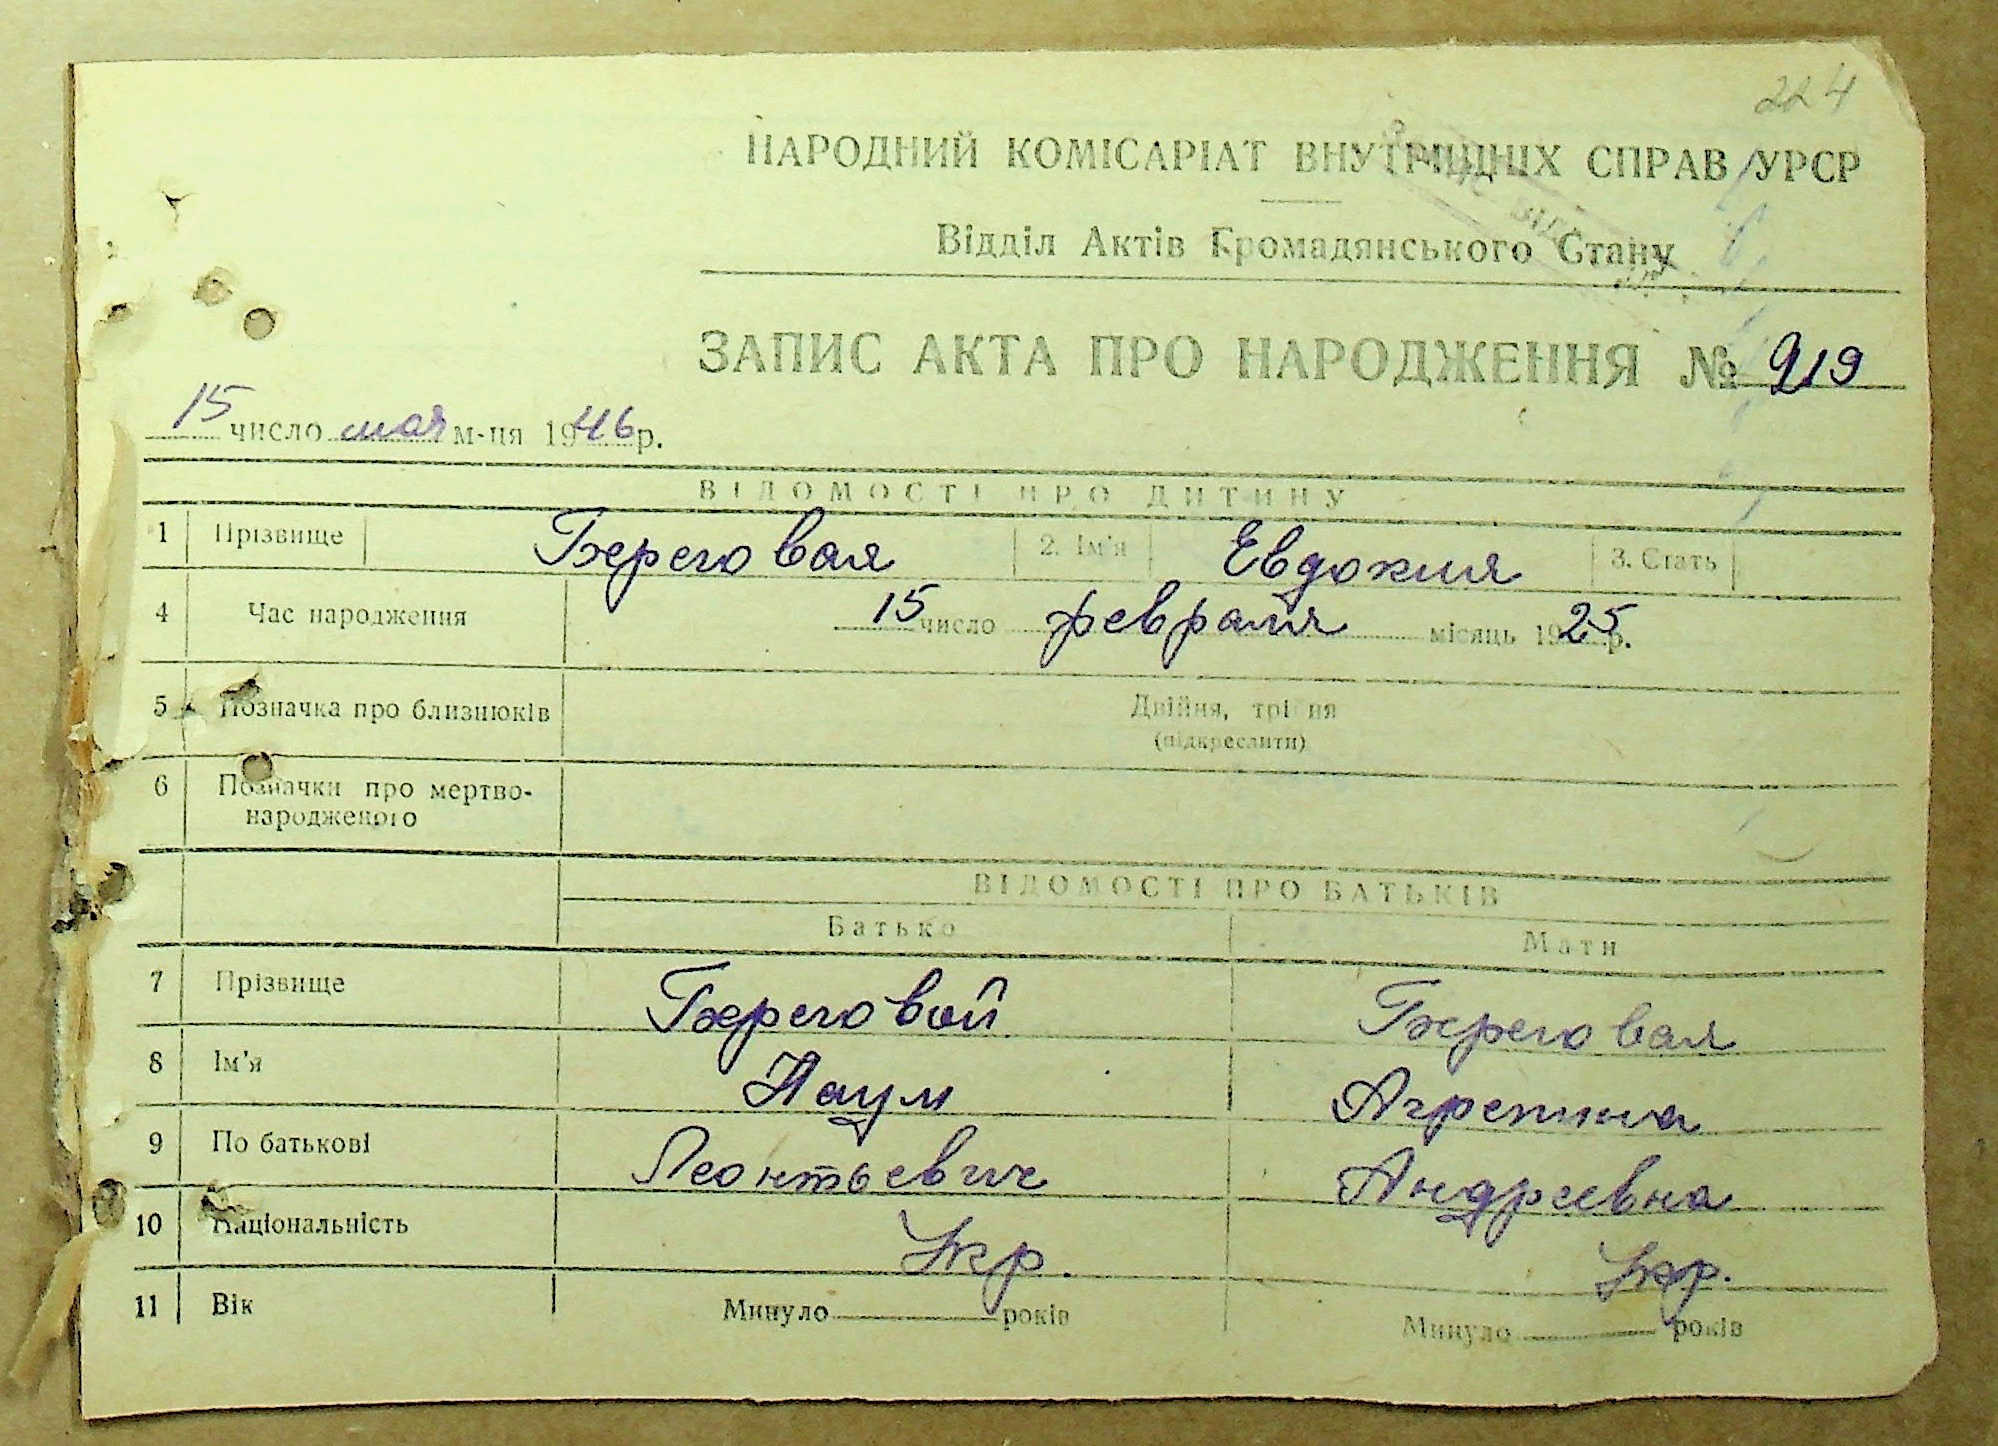 224
НАРОДНИЙ КОМІСАРІАТ ВНУТРІШНІХ СПРАВ УРСР
Відділ Актів Громадянського Стану
ЗАПИС АКТА ПРО НАРОДЖЕННЯ № 919
15 число мая м-ця 1946 р.
ВІДОМОСТІ ПРО ДИТИНУ
1 Прізвище Береговая 2. Ім'я Евдокия 3. Стать
4 Час народження 15 число февраля місяць 1925 р.
5 Позначка про близнюків Двійня, трійня
(підкреслити)
6 Позначки про мертво-
народженого
ВІДОМОСТІ ПРО БАТЬКІВ
Батько Мати
7 Прізвище Береговой Береговая
8 Ім'я Наум Агрепина
9 По батькові Леонтьевич Андреевна
10 Національність Укр. Укр.
11 Вік Минуло років Минуло років